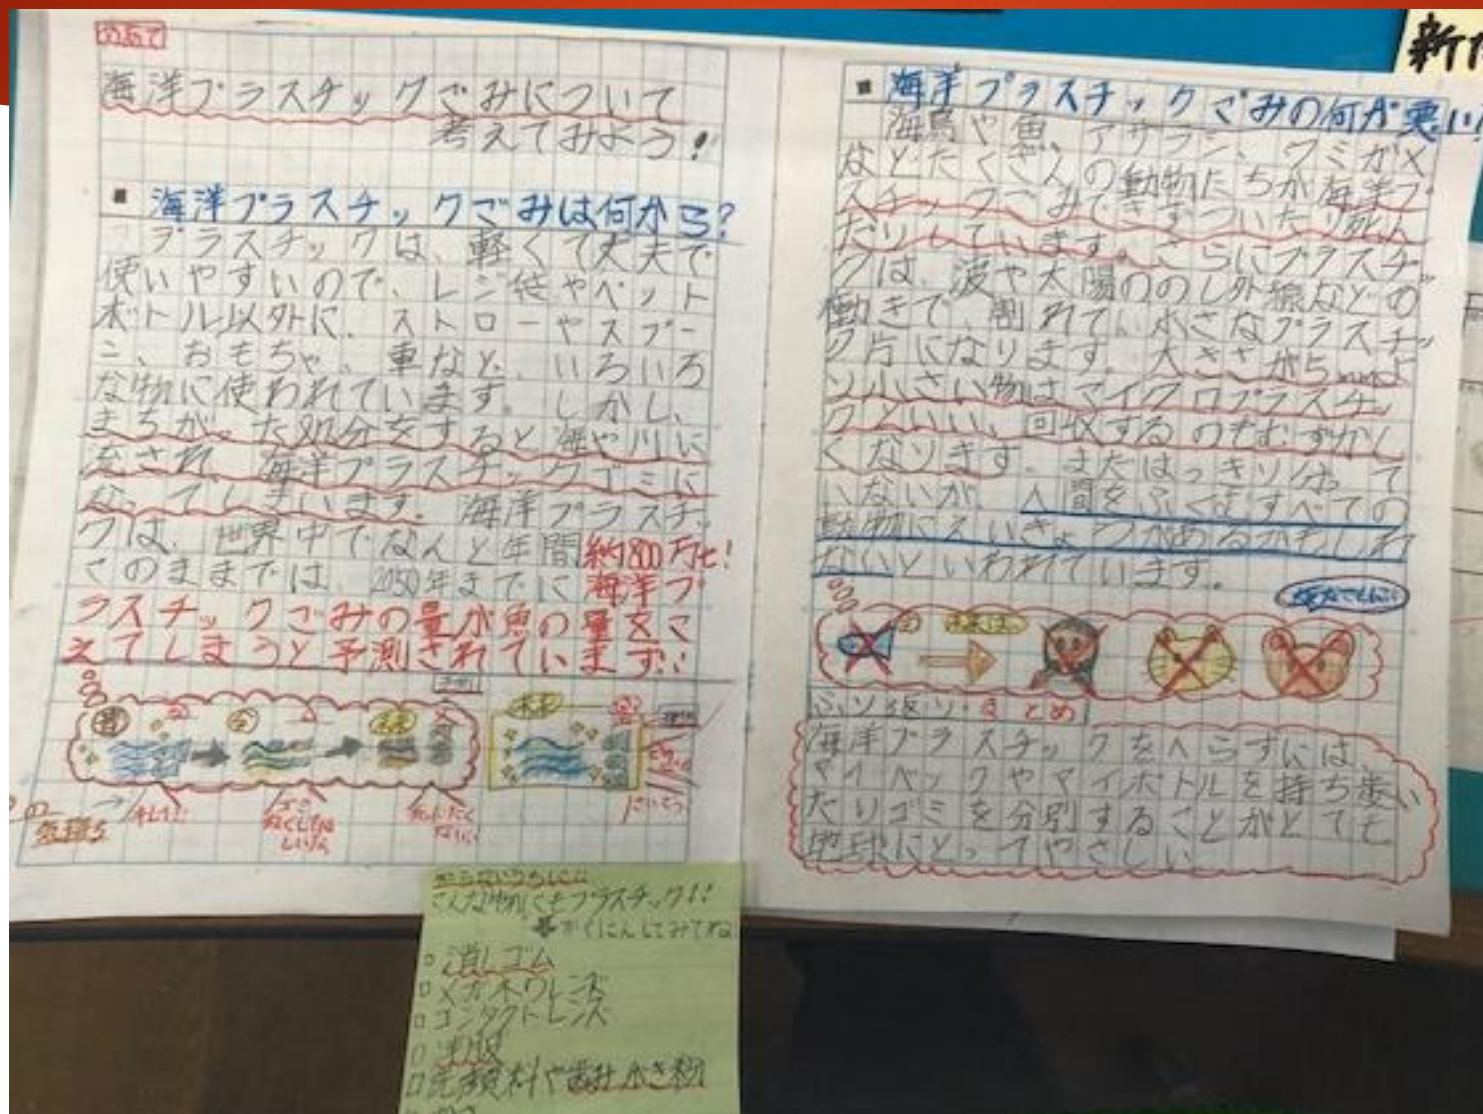 めあて
海洋プラスチックごみについて
考えてみよう!
■ 海洋プラスチックごみは何かな?
プラスチックは、軽くて丈夫で
使いやすいので、レジ袋やペット
ボトル以外に、ストローやスプー
ン、おもちゃ、車など、いろいろ
な物に使われています。しかし、
まちがった処分をすると海や川に
流され、海洋プラスチックゴミに
なってしまいます。海洋プラスチッ
クは、世界中でなんと年間約800万t!
このままでは、2050年までに海洋プ
ラスチックごみの量が魚の量をこ
えてしまうと予測されています!!
昔
今
未来
未来
気持ち
■ 海洋プラスチックごみの何が悪い!
海鳥や魚、アザラシ、ウミガメ
などたくさんの動物たちが海洋プ
スチックごみできずついたり死ん
だりしています。さらにプラスチッ
クは、波や太陽のの外線などの
働きで、割れて、小さなプラスチッ
ク片になります。大きさが5mmよ
り小さい物はマイクロプラスチッ
クといい、回収するのもむずかし
くなります。またはっきり分って
いないが、人間をふくむすべての
動物にえいきょうがあるかもしれ
ないといわれています。
今
未来は
ふり返り・まとめ
海洋プラスチックをへらすには、
マイバックやマイボトルを持ち歩い
たりゴミを分別することがとても
地球にとってやさしい
知らないうちに
こんな物にもプラスチック!!
かくにんしてみてね!
□消しゴム
□メガネのレンズ
□コンタクトレンズ
□洗顔料や歯みがき粉
新